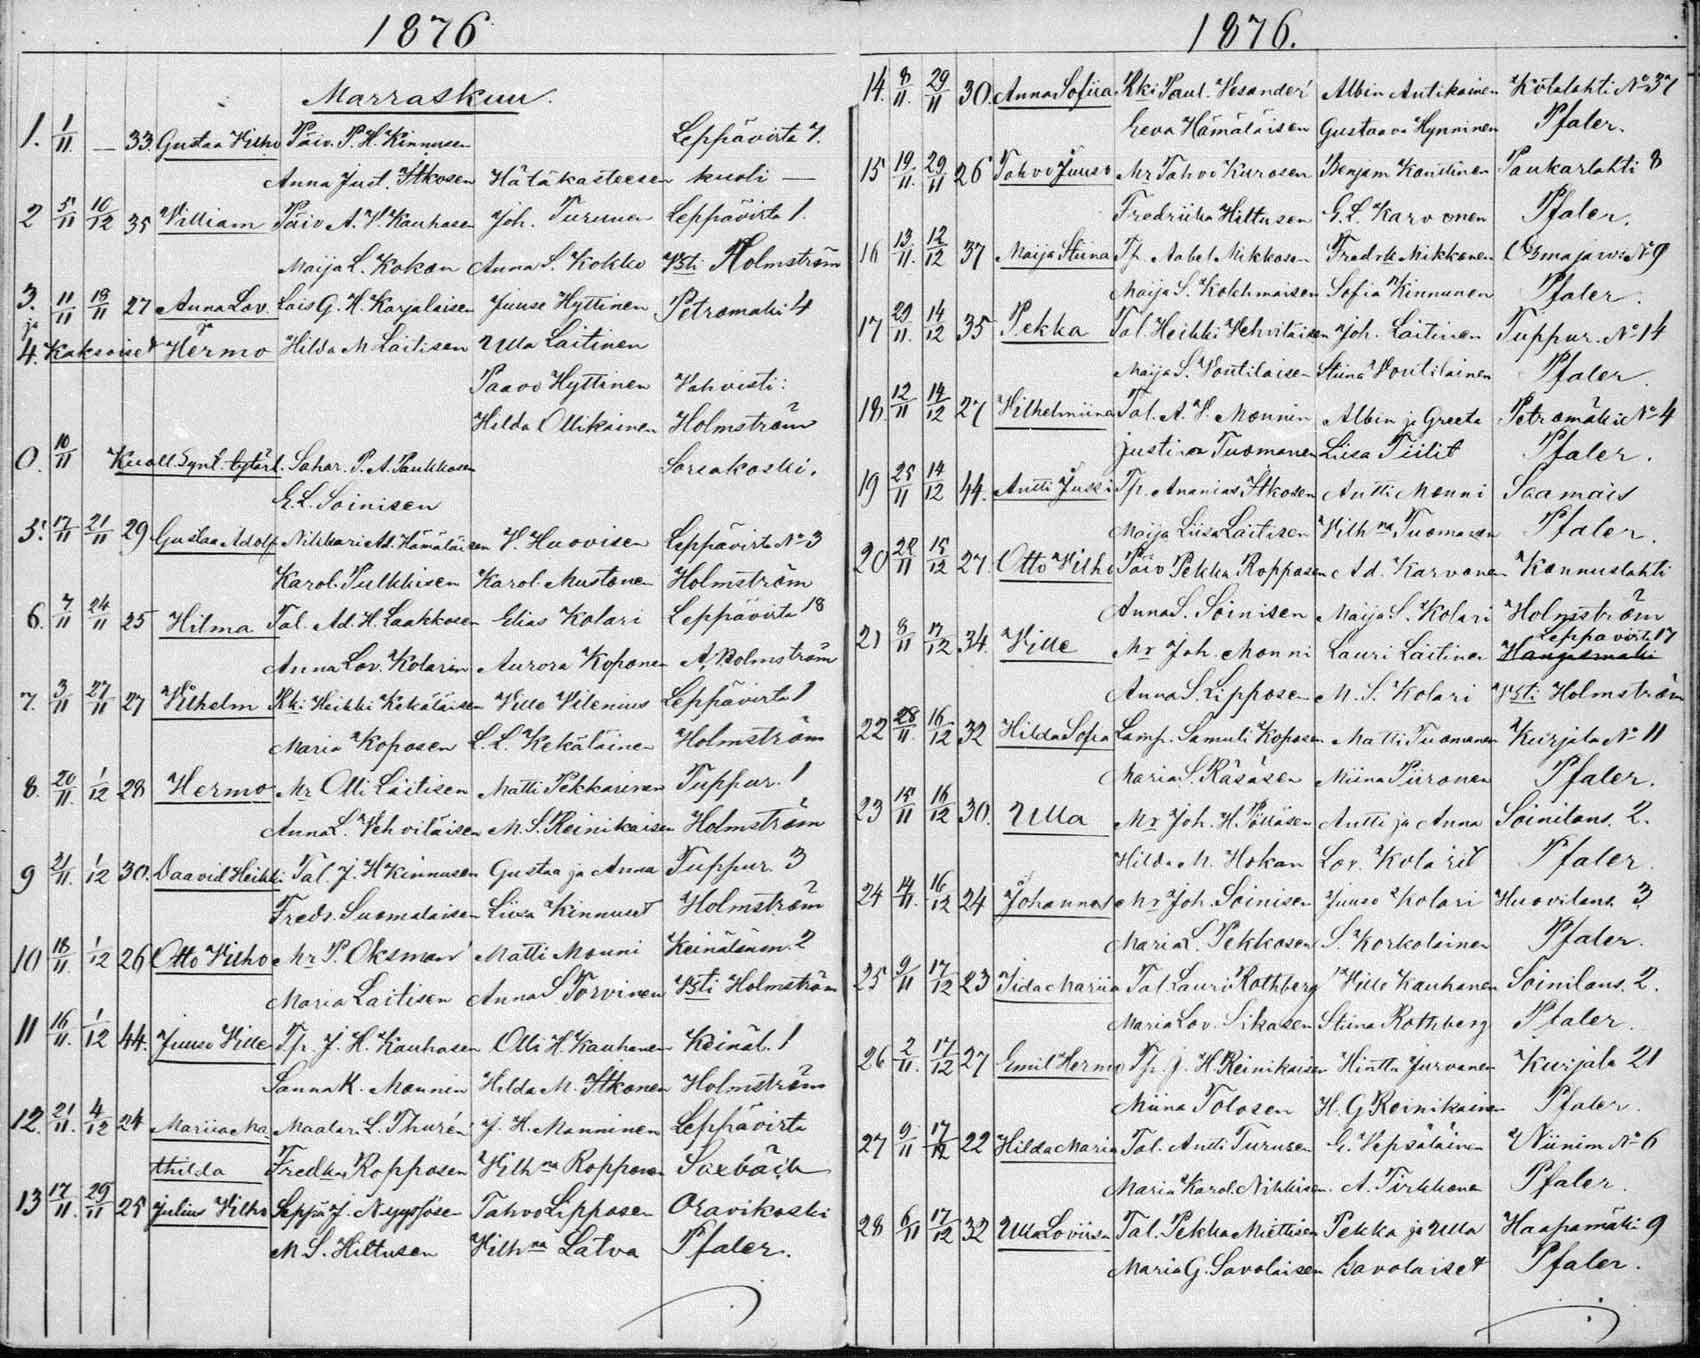 1876
Marraskuu.
1. 1/11 — 33. Gustaa Vilho Päiv. P. H. Kinnusen Leppävirta 7.
Anna Just. Itkosen Hätäkasteesen kuoli —
2 5/11 10/12 35 William Päiv A. V. Kauhasen Joh. Turunen Leppävirta 1.
Maija L. Kokon Anna S. Kokko Vsti Holmström
3. 11/11 18/11 27 Anna Lov. Lois G. H. Karjalaisen Juuse Hyttinen Petromäki 4
ja
4. Kaksoiset ja Hermo Hilda M Laitisen Ulla Laitinen
Paavo Hyttinen Vahvisti:
Hilda Ollikainen Holmström
0. 10/11 Kuoll. synt. tytärl. Sahar. P. A. Paukkosen Sorsakoski.
E. L. Soinisen
5. 17/11 21/11 29 Gustaa Adolf Nikkari Ad. Hämäläisen V. Huovisen Leppävirta No 3
Karol. Pulkkisen Karol. Mustonen Holmström
6. 7/11 24/11 25 Hilma Tal. Ad. H. Laakkosen Elias Kolari Leppävirta 18
Anna Lov. Kolarin Aurora Koponen A. Holmström
7. 3/11 27/11 27 Vilhelm Rki Heikki Kekäläisen Ville Vilenius Leppävirta 1
Maria Koposen L. L. Kekäläinen Holmström
8. 20/11 1/12 28 Hermo Mr Olli Laitisen Matti Pekkarinen Tuppur. 1
Anna L. Vehviläisen M. S. Reinikaisen Holmström
9 21/11. 1/12 30. Daavid Heikki Tal. J. H Kinnusen Gustaa ja Anna Tuppur. 3
Fredr. Suomalaisen Liisa Kinnuset Holmström
10 18/11. 1/12 26 Otto Vilho Mr P. Oksman Matti Monni Keinälänm. 2
Maria Laitisen Anna S Torvinen Vsti Holmström
11 16/11. 1/12 44. Juuso Ville Tp. J. H. Kauhasen Olli H. Kauhanen Keinäl. 1
Sanna K. Monnin Hilda M. Itkonen Holmström
12. 21/11. 4/12 24 Mariia Ma- Maalar. L. Thurén J. H. Manninen Leppävirta
thilda Fredka Ropposen Vilhna Ropponen Saxbäck
13 17/11. 29/11 25 Julius Vilho Seppä J. Nygrföse Tahvo Lipposen Oravikoski
M. S. Hiltusen Vilhna Latva Pfaler.
1876.
14. 8/11. 29/11 30. Anna Sofiia Rki Paul. Vesander Albin Antikainen Kotalahti No 37
Eeva Hämäläisen Gustaava Hynninen Pfaler.
15 19/11. 29/11 26 Tahvo Juuso Mr Tahvo Kurosen Benjam Konttinen Paukarlahti 8
Fredriika Hiltusen G. L. Karvonen Pfaler.
16 13/11. 12/12 37 Maija Stiina Tp. Aabel Mikkosen Fredrik Mikkonen Osmajärwi No 9
Maija S. Kokkmaisen Sofia Kinnunen Pfaler.
17 29/11. 14/12 35 Pekka Tal. Heikki Vehviläisen Joh. Laitinen Tuppur. No 14
Maija S. Voutilaisen Stiina Voutilainen Pfaler.
18. 12/11 14/12 27 Vilhelmiina Tal. A. V. Monnin Albin ja Greeta Petromäki No 4
Justina Tuomanen Liisa Tiilit Pfaler.
19 25/11 14/12 44. Antti Jussi Tp. Ananias Itkosen Antti Monni Saamais
Maija Liisa Laitisen Vilhna Tuomanen Pfaler.
20 28/11 15/12 27. Otto Vilho Päiv Pekka Ropposen Ad. Karvonen Konnuslahti
Anna S. Soinisen Maija S. Kolari Holmström
21 8/11 17/12 34. Ville Mr Joh. Monni Lauri Laitinen Leppävirta 17
Anna S. Lipposen M. S. Kolari Vsti Holmström
22 28/11. 16/12 32 Hilda Sofia Lamp. Samuli Koposen Matti Tuomanen Kurjala No 11
Maria S. Räsäsen Miina Piironen Pfaler.
23 15/11 16/12 30. Ulla Mr Joh. H. Pölläsen Antti ja Anna Soinilans. 2.
Hilda M. Hokan Lov. Kolarit Pfaler.
24 14/11. 16/12 24 Johannes Mr Joh. Soinisen Juuso Kolari Huovilans. 3.
Maria L. Pekkosen S. Korkolainen Pfaler.
25 9/11 17/12 23 Iida Mariia Tal Lauri Rothberg Ville Kauhanen Soinilans. 2.
Maria Lov. Sikasen Stiina Rothberg Pfaler.
26 2/11. 17/12 27 Emil Hermo Tp. J. H. Reinikaisen Hinttu Jurvanen Kurjala 21
Miina Tolosen H. G Reinikainen Pfaler.
27 9/11 17/12 22 Hilda Maria Tal. Antti Turusen G. Vepsäläinen Niinim No 6
Maria Karol. Nikkisen A. Tirkkonen Pfaler.
28 6/11 17/12 32 Ulla Loviisa Tal. Pekka Miettisen Pekka ja Ulla Haapamäki 9
Maria G. Savolaisen Savolaiset Pfaler.